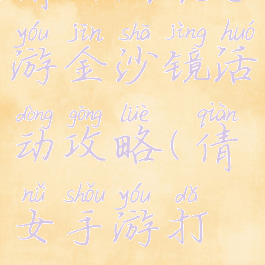 yóu jīn shā jìng huó
游金沙镜活
dòng gōng lüè qiàn
动攻略(倩
nǚ shǒu yóu dǎ
女手游打